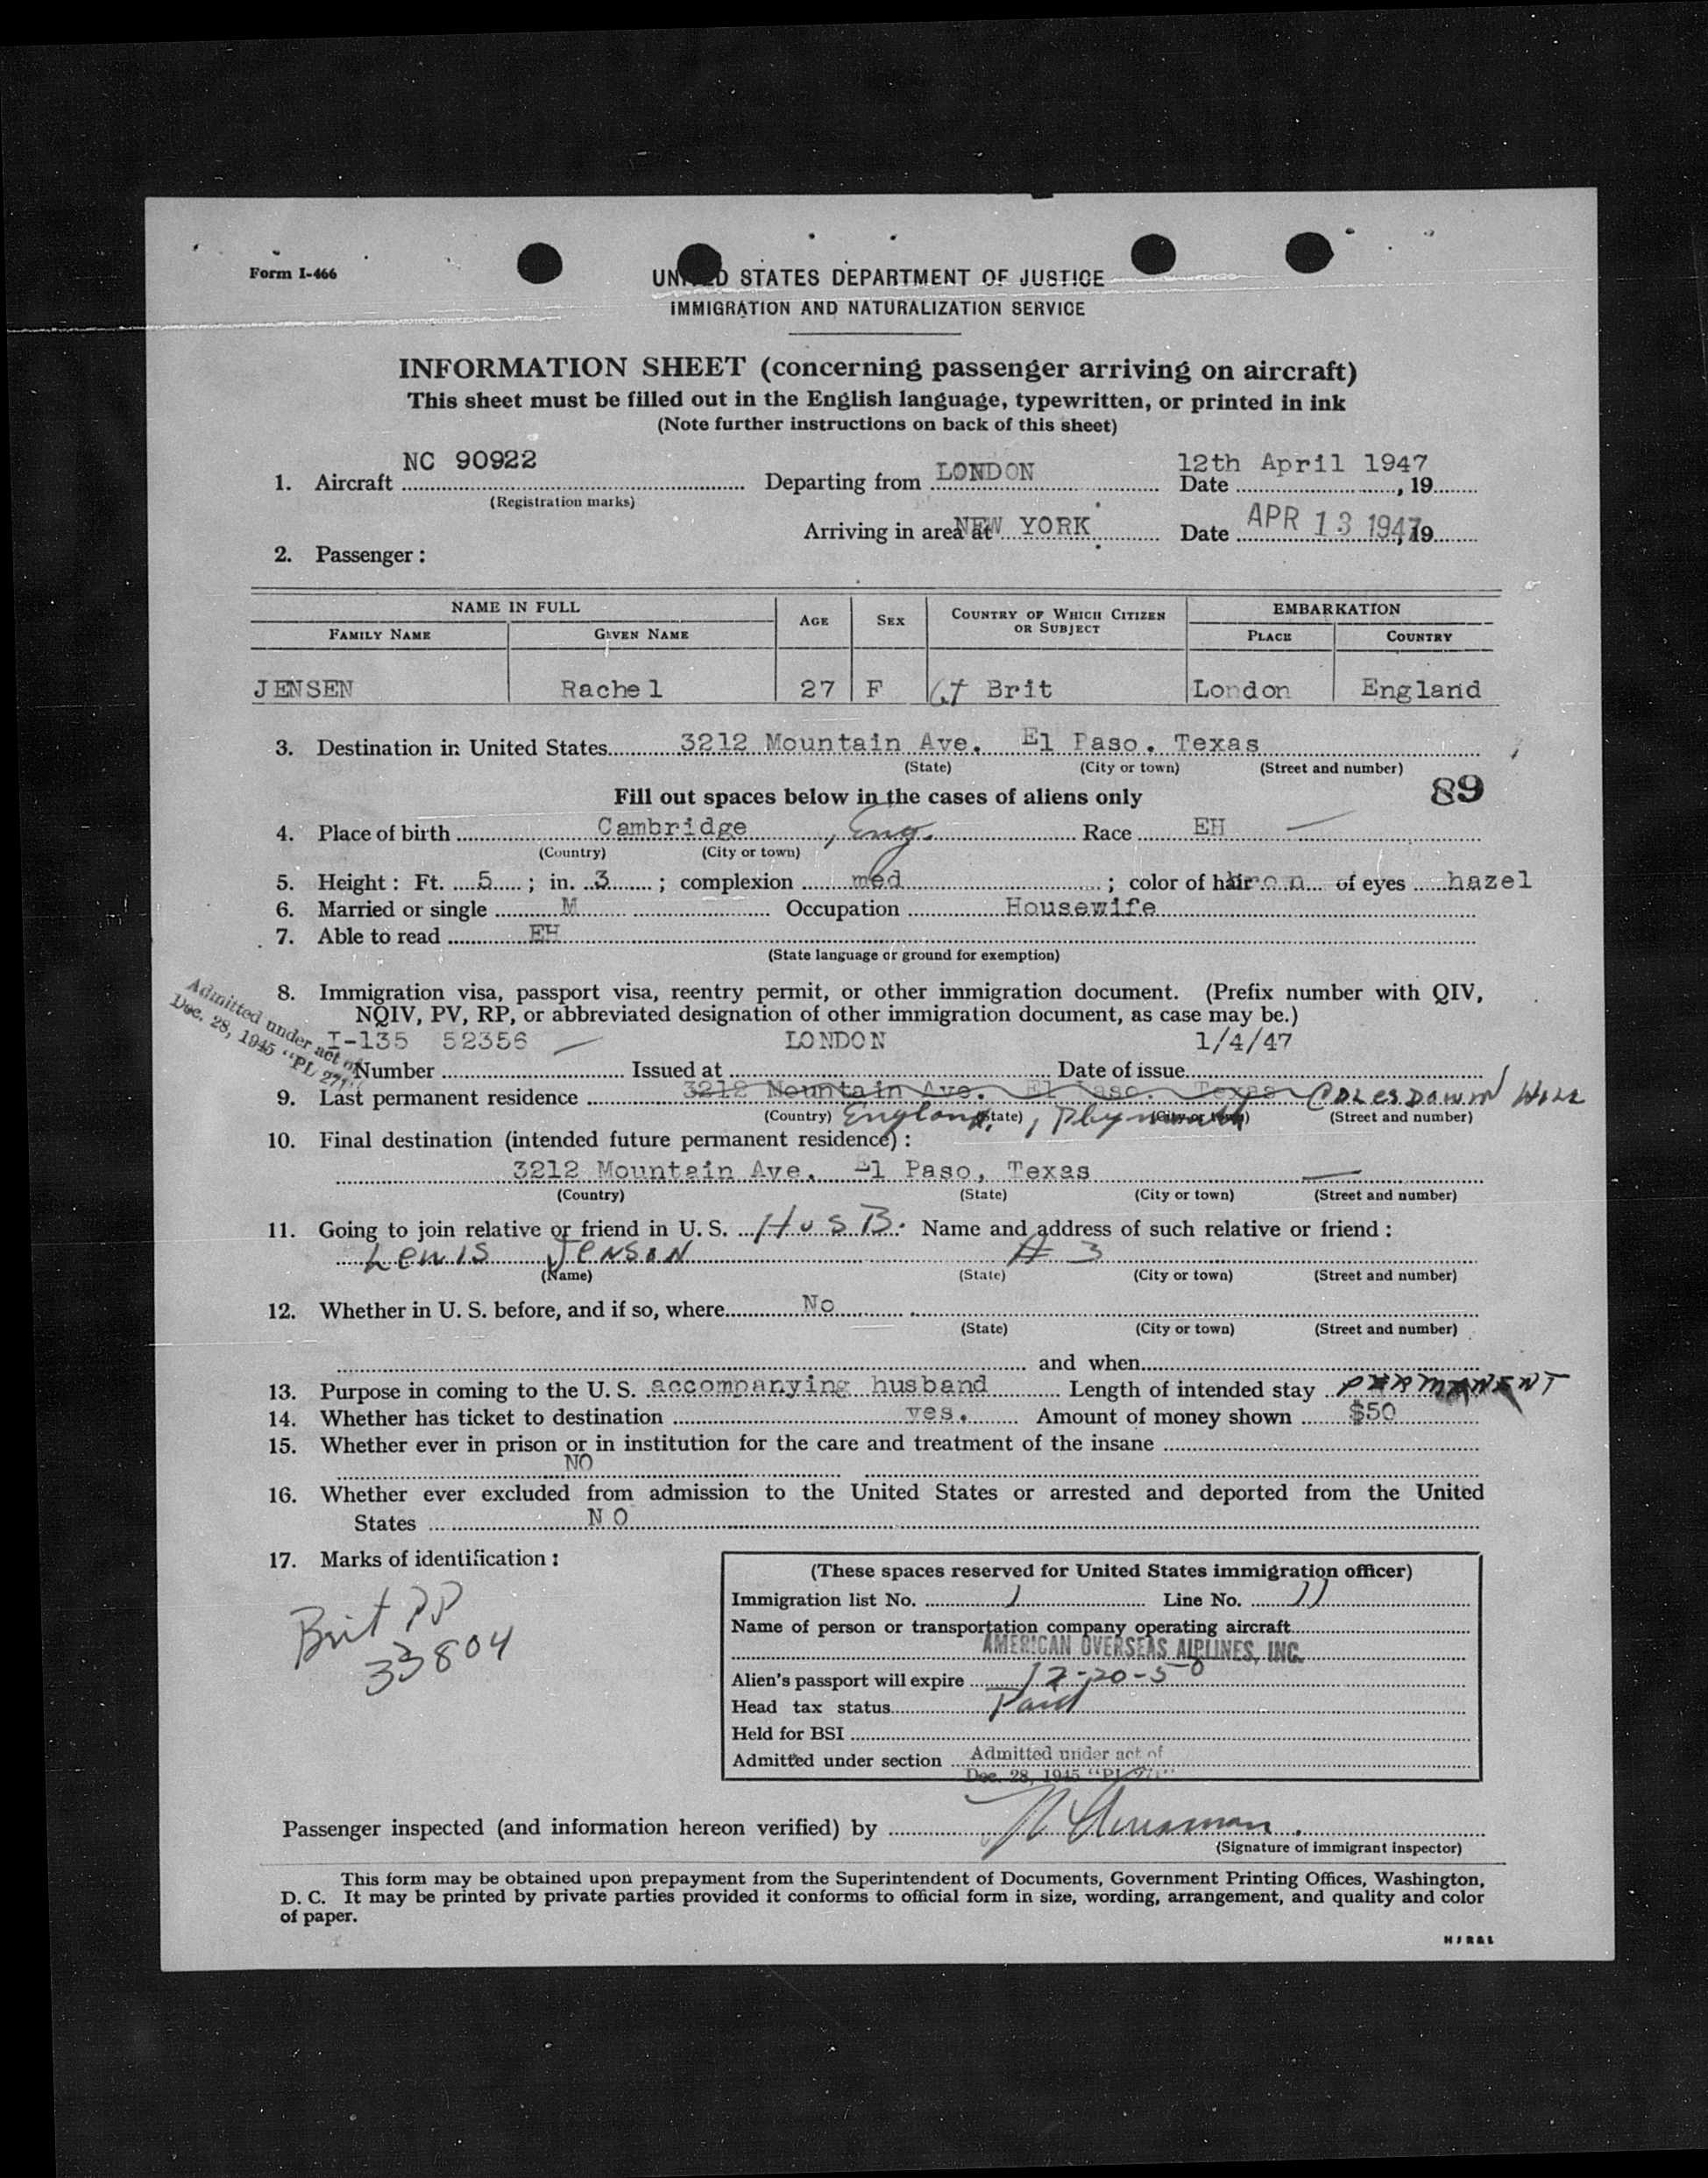 Form I-466
UNITED STATES DEPARTMENT OF JUSTICE
IMMIGRATION AND NATURALIZATION SERVICE
INFORMATION SHEET (concerning passenger arriving on aircraft)
This sheet must be filled out in the English language, typewritten, or printed in ink
(Note further instructions on back of this sheet)
1. Aircraft NC 90922 Departing from LONDON Date 12th April 1947, 19
(Registration marks)
Arriving in area at NEW YORK Date APR 13 1947, 19
2. Passenger:
NAME IN FULL AGE SEX COUNTRY OF WHICH CITIZEN OR SUBJECT EMBARKATION
FAMILY NAME GIVEN NAME PLACE COUNTRY
JENSEN Rachel 27 F Gt Brit London England
3. Destination in United States 3212 Mountain Ave. El Paso. Texas
(State) (City or town) (Street and number)
89
Fill out spaces below in the cases of aliens only
4. Place of birth Cambridge, Eng. Race EH
(Country) (City or town)
5. Height: Ft. 5; in. 3; complexion med; color of hair bron of eyes hazel
6. Married or single M Occupation Housewife
7. Able to read EH
(State language or ground for exemption)
Admitted under act of
Dec. 28, 1945 "PL 271"
8. Immigration visa, passport visa, reentry permit, or other immigration document. (Prefix number with QIV,
NQIV, PV, RP, or abbreviated designation of other immigration document, as case may be.)
I-135 52356 LONDON 1/4/47
Number Issued at Date of issue
9. Last permanent residence 3212 Mountain Ave. El Paso. Texas
(Country) England, (State), Plymouth (City or town) (Street and number)
10. Final destination (intended future permanent residence):
3212 Mountain Ave. El Paso, Texas
(Country) (State) (City or town) (Street and number)
11. Going to join relative or friend in U. S. HUSB. Name and address of such relative or friend:
Lewis Jenson # 3
(Name) (State) (City or town) (Street and number)
12. Whether in U. S. before, and if so, where No
(State) (City or town) (Street and number)
and when
13. Purpose in coming to the U. S. accompanying husband Length of intended stay PERMANENT
14. Whether has ticket to destination yes. Amount of money shown $50
15. Whether ever in prison or in institution for the care and treatment of the insane
NO
16. Whether ever excluded from admission to the United States or arrested and deported from the United
States NO
17. Marks of identification:
Brit PP
33804
(These spaces reserved for United States immigration officer)
Immigration list No. 1 Line No. 11
Name of person or transportation company operating aircraft
AMERICAN OVERSEAS AIRLINES, INC.
Alien's passport will expire 12-20-50
Head tax status Paid
Held for BSI
Admitted under section Admitted under act of
Dec. 28, 1945 "PL 271"
Passenger inspected (and information hereon verified) by
(Signature of immigrant inspector)
This form may be obtained upon prepayment from the Superintendent of Documents, Government Printing Offices, Washington,
D. C. It may be printed by private parties provided it conforms to official form in size, wording, arrangement, and quality and color
of paper.